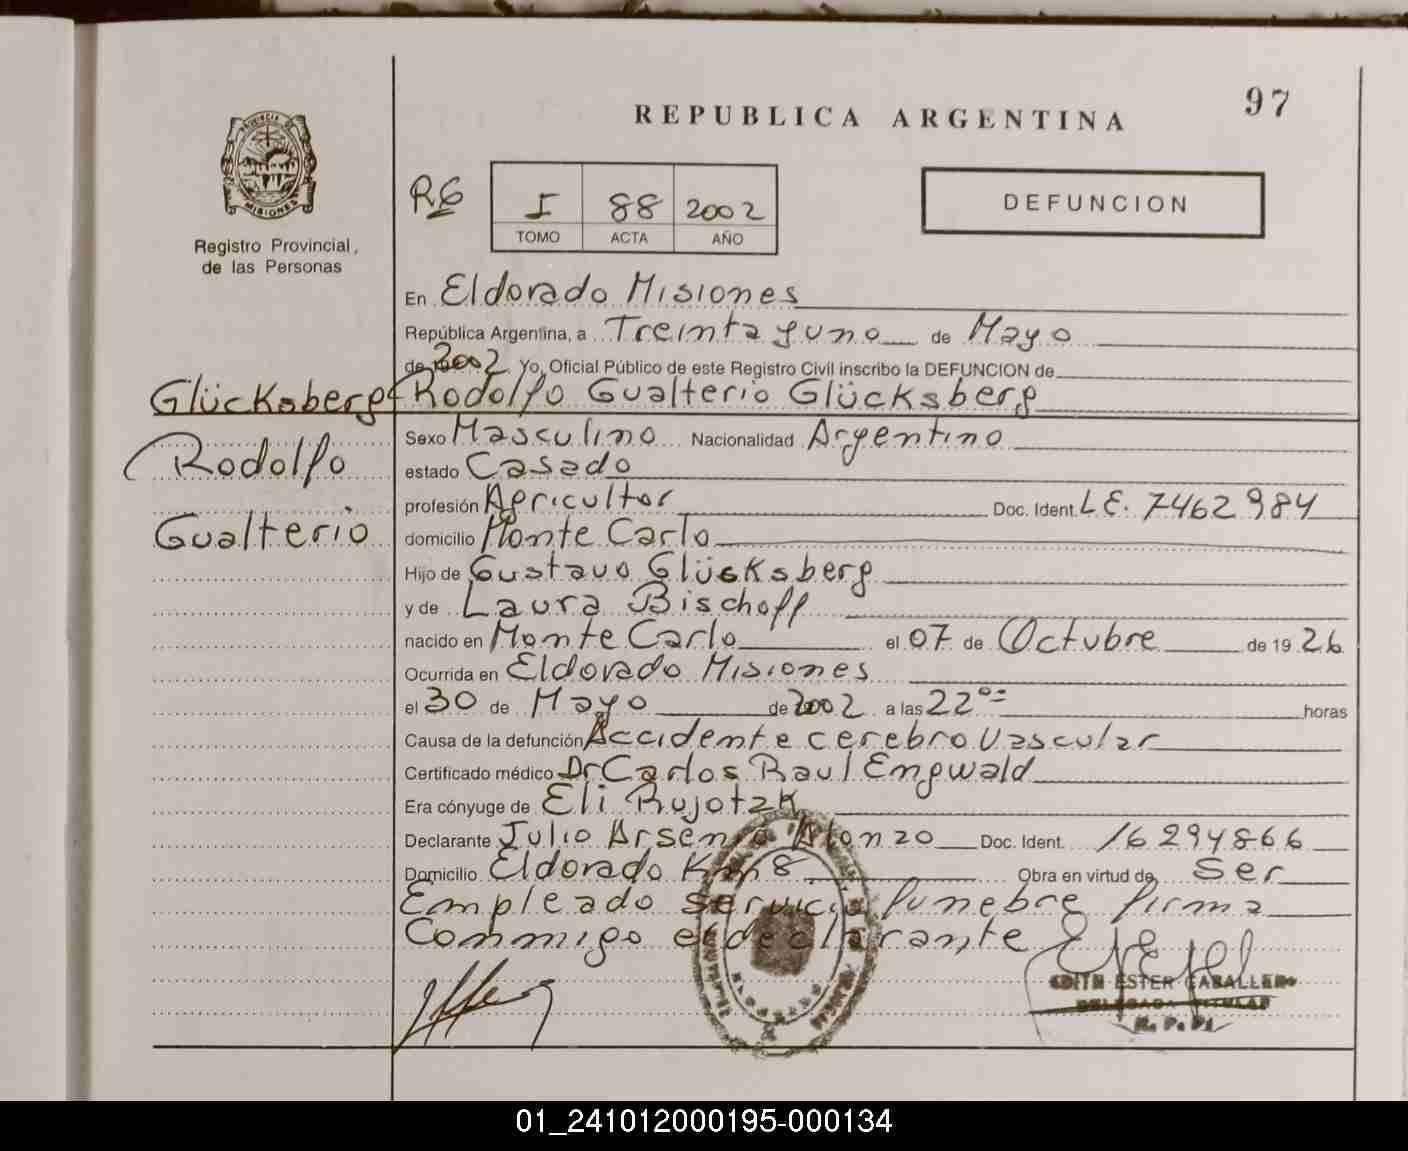 97
REPUBLICA ARGENTINA
PROVINCIA DE
MISIONES
Registro Provincial,
de las Personas
I 88 2002
TOMO ACTA AÑO
DEFUNCION
En Eldorado Misiones
República Argentina, a Treinta y uno de Mayo
de 2002 Yo, Oficial Público de este Registro Civil inscribo la DEFUNCION de
Glücksberg Rodolfo Gualterio Glücksberg
Sexo Masculino Nacionalidad Argentino
Rodolfo estado Casado
profesión Agricultor Doc. Ident. L.E. 7462984
Gualterio domicilio Monte Carlo
Hijo de Gustavo Glücksberg
y de Laura Bischoff
nacido en Monte Carlo el 07 de Octubre de 1926
Ocurrida en Eldorado Misiones
el 30 de Mayo de 2002 a las 22 horas
Causa de la defunción Accidente cerebro vascular
Certificado médico Dr Carlos Raul Engwald
Era cónyuge de Eli Rujotzk
Declarante Julio Arsenio Alonzo Doc. Ident. 16294866
Domicilio Eldorado Km 8 Obra en virtud de Ser
Empleado servicio funebre firma
Conmigo el declarante
EDITH ESTER CABALLERO
DELEGADA TITULAR
R. P. P.
01_241012000195-000134